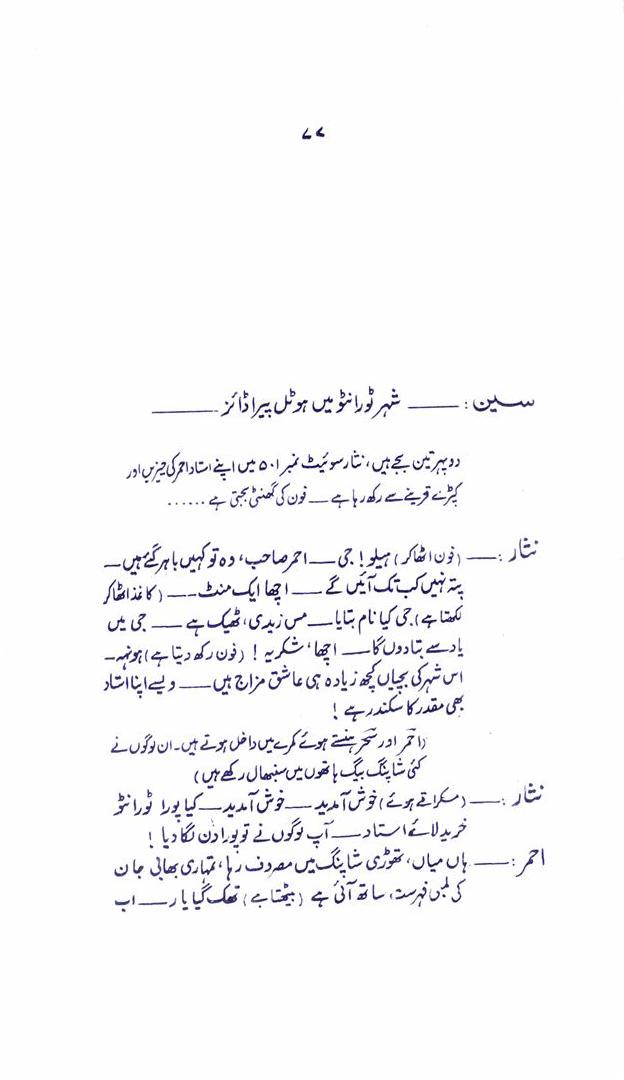 ۷۷
سین: —— شہر ٹورانٹو میں ہوٹل پیراڈائز ——
دوپہر تین بجے ہیں، نثار سوئیٹ نمبر ۵۰۱ میں اپنے استاد احمر کی چیزیں اور
کپڑے قرینے سے رکھ رہا ہے — فون کی گھنٹی بجتی ہے ......
نثار: —— (فون اٹھا کر) ہیلو! جی — احمر صاحب، وہ تو کہیں باہر گئے ہیں —
پتہ نہیں کب تک آئیں گے — اچھا ایک منٹ — (کاغذ اٹھا کر
لکھتا ہے) جی کیا نام بتایا — مس زیدی، ٹھیک ہے — جی میں
یاد سے بتا دوں گا — اچھا، شکریہ! (فون رکھ دیتا ہے) ہونہہ —
اس شہر کی بچیاں کچھ زیادہ ہی عاشق مزاج ہیں — ویسے اپنا استاد
بھی مقدر کا سکندر ہے!
(احمر اور سحر ہنستے ہوئے کمرے میں داخل ہوتے ہیں۔ ان لوگوں نے
کئی شاپنگ بیگ ہاتھوں میں سنبھال رکھے ہیں)
نثار: —— (مسکراتے ہوئے) خوش آمدید — خوش آمدید — کیا پورا ٹورانٹو
خرید لائے استاد — آپ لوگوں نے تو پورا دن لگا دیا!
احمر: —— ہاں میاں، تھوڑی شاپنگ میں مصروف رہا، تمہاری بھابی جان
کی لمبی فہرست، ساتھ آئی ہے (بیٹھتا ہے) تھک گیا یار — اب